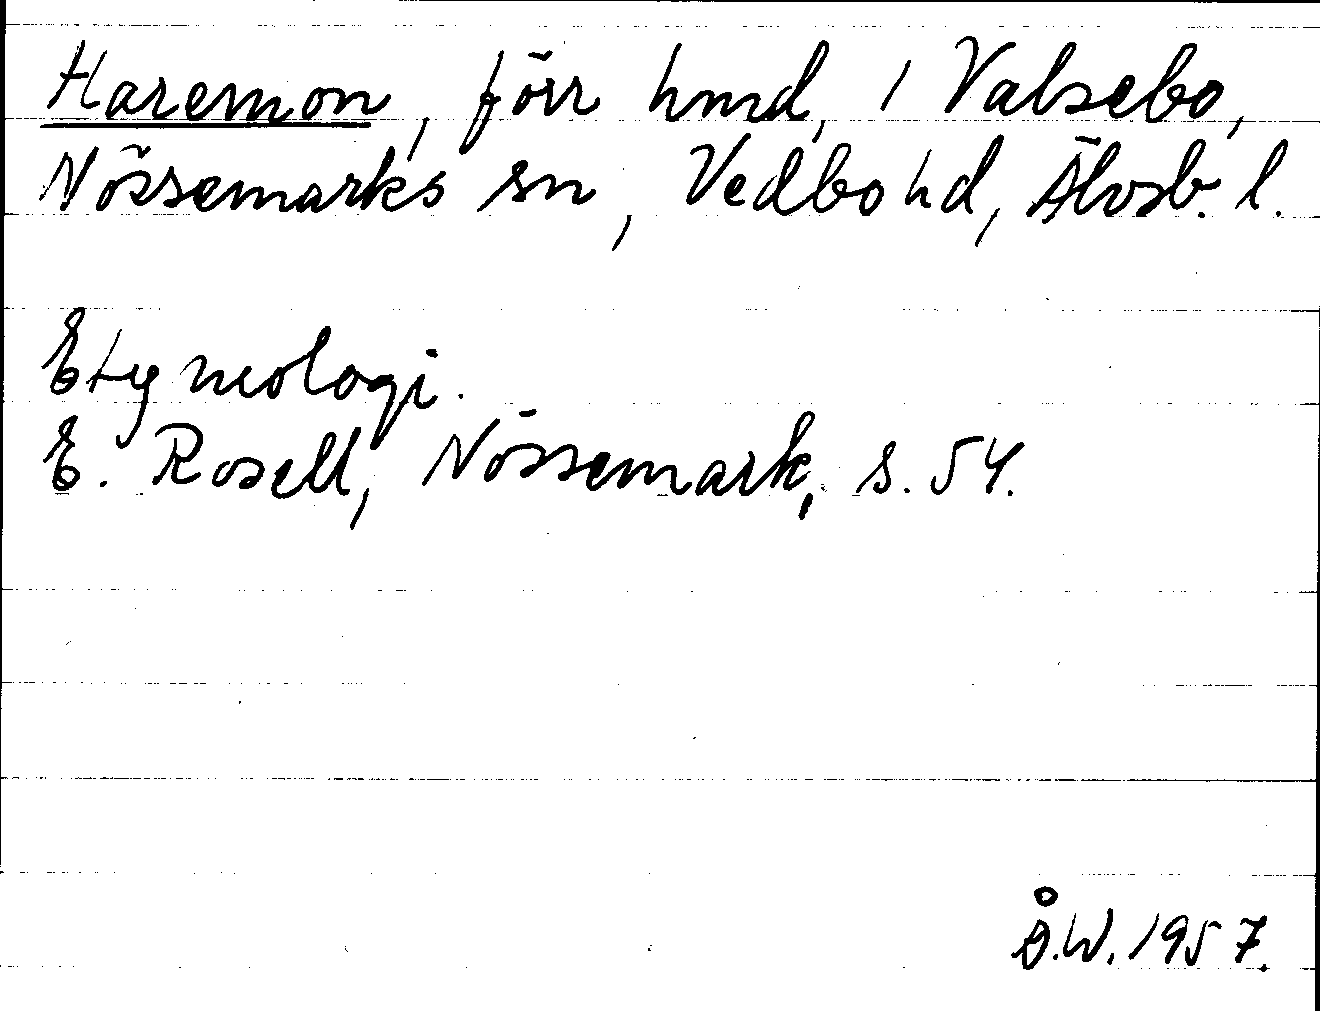 Haremon, förr hmd, i Valsebo,
Nössemarks sn, Vedbo hd, Älvsb. l.
Etymologi.
E. Rosell, Nössemark, s. 54.
Å.W. 1957.